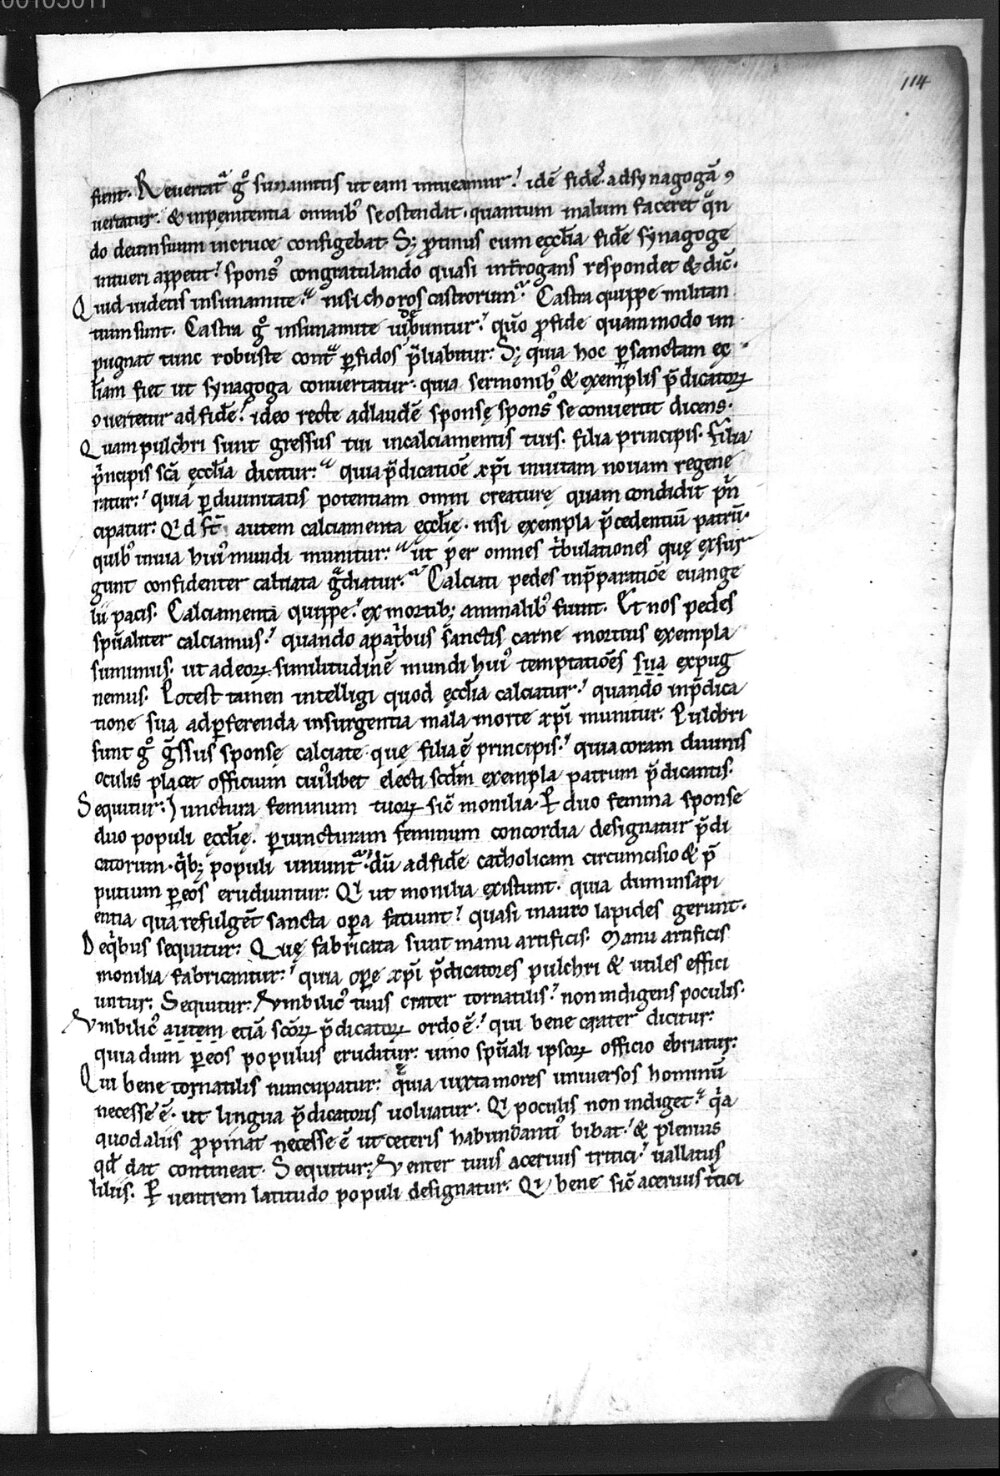 114
fiunt. Reuertat᷒ gͦ sunamitis ut eam intueamur! idē fidē. ad synagogā ꝯ
uertatur. & inpęnitentia omnibꝰ se ostendat. quantum malum faceret qn̄
do deum suum in cruce configebat. S; ꝓtinus cum ęccl̄ia fidē synagoge
intueri appetit! sponsꝰ congratulando quasi int̄rogans respondet & dic̄.
Quid uidetis in sunamite. nisi choros castrorum. Castra quippe militan
tium sunt. Castra gͦ in sunamite uidebuntur! quo ꝓ fide quam modo im
pugnat tunc robuste cont̄ ꝑfidos p̄liabitur. S; quia hoc ꝑ sanctam ęc
l̄iam fiet ut synagoga conuertatur. quia sermonibꝰ & ęxemplis p̄dicatoꝝ
ꝯuertetur ad fidē! ideo recte ad laudē sponsę sponsꝰ se conuertit dicens.
Quam pulchri sunt gressus tui in calciamentis tuis. filia principis. Filia
p̄ncipis sc̄a ęccl̄ia dicitur. quia p̄dicatiōe xp̄i in uitam nouam regene
ratur! quia ꝑ diuinitatis potentiam omni creaturę quam condidit p̄n
cipatur. Qd st̄ autem calciamenta ęccl̄ię. nisi exempla p̄cedentiū patrū.
quibꝰ in uia huiꝰ mundi munitur. ut per omnes t̄bulationes quę ęxsur
gunt confidenter caltiata ḡdiatur. Calciati pedes in p̄paratiōe euange
lii pacis. Calciamenta quippe! ex mortib; animalibꝰ fiunt. Et nos pedes
sp̄ualiter calciamus! quando a patribus sanctis carne mortuis exempla
sumimus. ut ad eoꝝ similitudinē mundi huiꝰ temptatiōes sua expug
nemus. Potest tamen intelligi quod ęccl̄ia calciatur! quando in p̄dica
tione sua ad ꝑferenda insurgentia mala morte xp̄i munitur. Pulchri
sunt gͦ ḡssus sponsę calciate. quę filia ē principis! quia coram diuinis
oculis placet officium cuiꝰlibet electi scd̄m exempla patrum p̄dicantis.
Sequitur. Iunctura feminum tuoꝝ sic̄ monilia. P duo femina sponse
duo populi ęccl̄ię. ꝑ iuncturam feminum concordia designatur p̄di
catorum. q̄b; populi uniunt᷒. dū ad fidē catholicam circumcisio & p̄
putium ꝑ eos erudiuntur. Qi ut monilia existunt. quia dum in sapi
entia qua refulget sancta oꝑa faciunt! quasi in auro lapides gerunt.
De q̄bus sequitur. Quę fabricata sunt manu artificis. Manu artificis
monilia fabricantur! quia oꝑe xp̄i p̄dicatores pulchri & utiles effici
untur. Sequitur. Vmbilicꝰ tuus crater tornatilis! non indigens poculis.
Vmbilicꝰ autem etiā sc̄oꝝ p̄dicatoꝝ ordo ē! qui bene crater dicitur.
quia dum ꝑ eos populus eruditur. uino sp̄uali ipsoꝝ officio ebriatur.
Qui bene tornatilis nuncupatur. quia iuxta mores uniuersos hominū
necesse ē. ut lingua p̄dicatoris uoluatur. Qi poculis non indiget. qia
quod aliis ꝓpinat necesse ē ut ceteris habundantiꝰ bibat. & plenius
qd̄ dat contineat. Sequitur. Venter tuus aceruus tritici. uallatus
liliis. P uentrem latitudo populi designatur. Qi bene sic̄ aceruus t̄tici